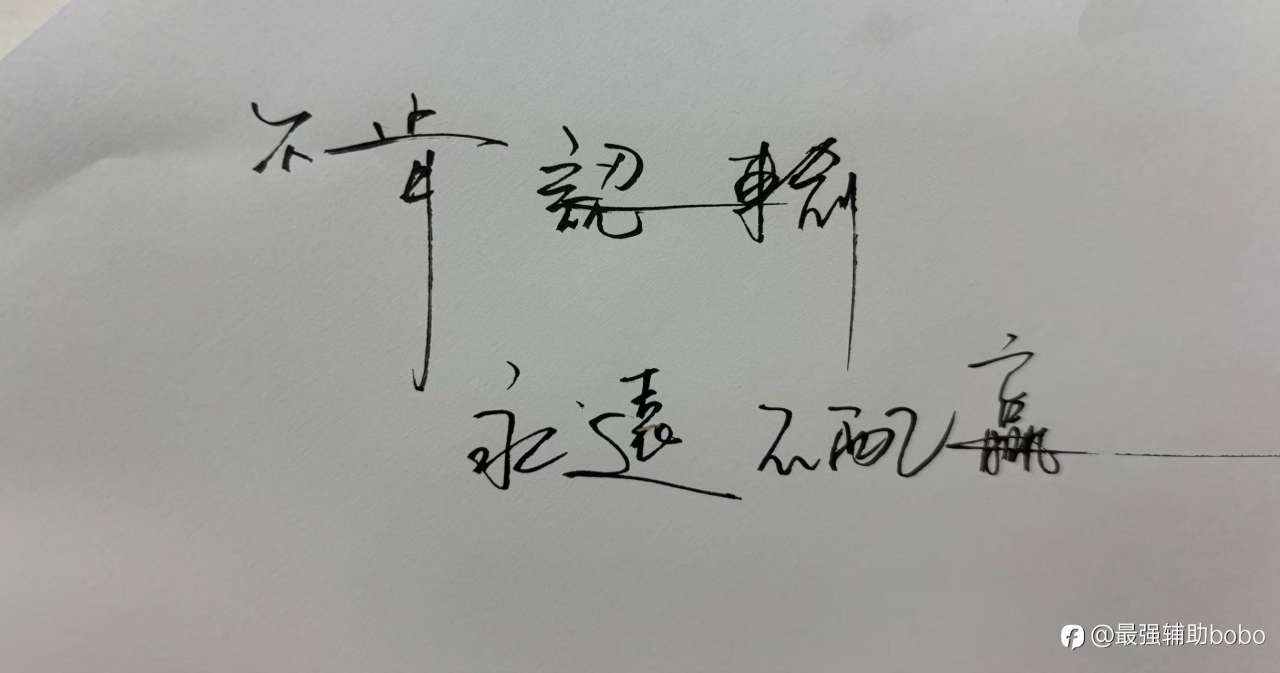 不肯認輸
永遠不配贏
@最强辅助bobo